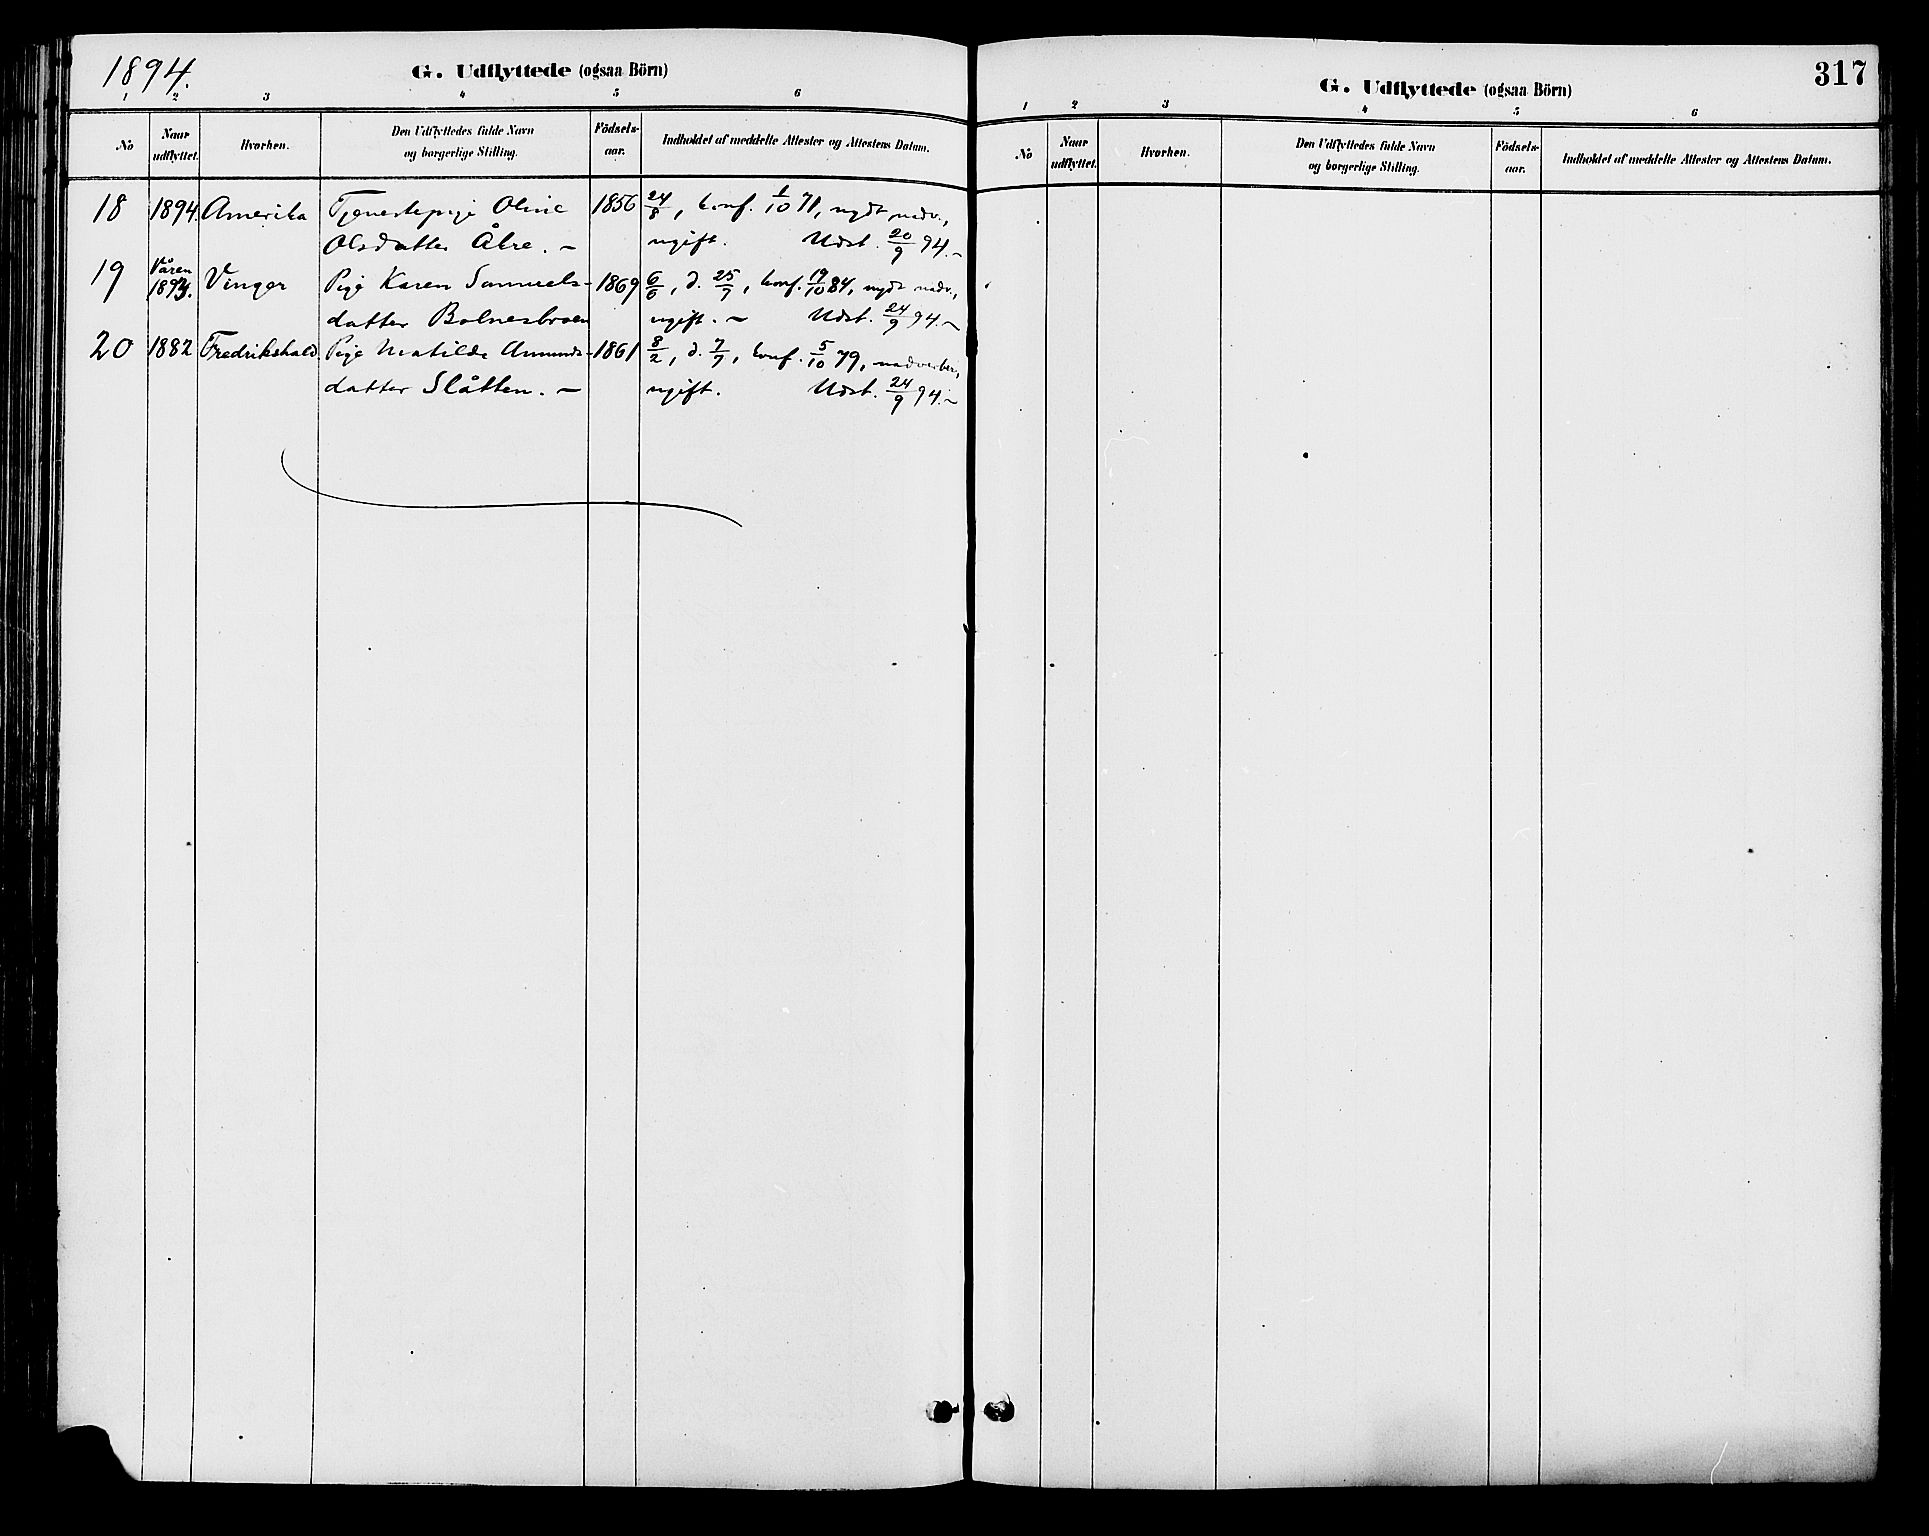 1894.
G. Udflyttede (ogsaa Börn)
1 2 3 4 5 6
No Naar udflyttet. Hvorhen. Den Udflyttedes fulde Navn og borgerlige Stilling. Födsels-aar. Indholdet af meddelte Attester og Attestens Datum.
18 1894. Amerika Tjenestepige Oline 1856 24/8, konf. 1/10 71, nydt nadv.,
Olsdatter Åbre. – ugift. Udst. 20/9 94. –
19 Våren 1893. Vinger Pige Karen Samuels- 1869 6/6, d. 25/7, konf. 19/10 84, nydt nadv.,
datter Bolnesbroen ugift. – Udst. 24/9 94. –
20 1882 Fredrikshald Pige Matilde Amunds- 1861 8/2, d. 7/7, konf. 5/10 79,
datter Slåtten. – ugift. Udst. 24/9 94. –
317
G. Udflyttede (ogsaa Börn)
1 2 3 4 5 6
No Naar udflyttet. Hvorhen. Den Udflyttedes fulde Navn og borgerlige Stilling. Födsels-aar. Indholdet af meddelte Attester og Attestens Datum.